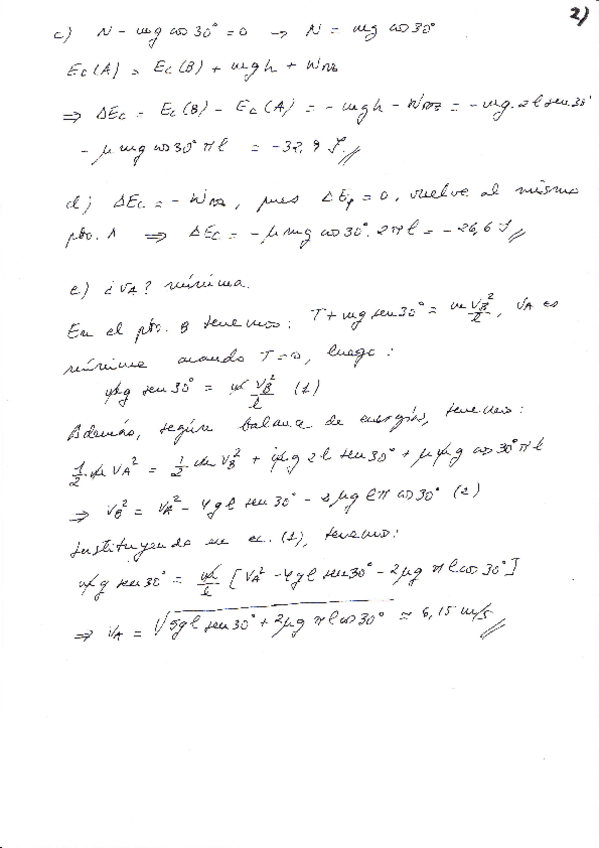 2)
c) N - mg cos 30° = 0 → N = mg cos 30°
Ec(A) = Ec(B) + mgh + Wroz
⇒ ΔEc = Ec(B) - Ec(A) = - mgh - Wroz = - mg. 2l sen 30°
- μ mg cos 30° π l = - 32,9 J.
d) ΔEc = - Wroz, pues ΔEp = 0, vuelve al mismo
pto. A ⇒ ΔEc = - μ mg cos 30°. 2π l = - 26,6 J
e) ¿VA? mínima.
En el pto. B tenemos: T + mg sen 30° = m VB²/l, VA es
mínima cuando T = 0, luego:
mg sen 30° = m VB²/l (1)
Además, según balance de energías, tenemos:
1/2 m VA² = 1/2 m VB² + mg 2l sen 30° + μ mg cos 30° π l
⇒ VB² = VA² - 4gl sen 30° - 2 μg l π cos 30° (2)
Sustituyendo en ec. (1), tenemos:
mg sen 30° = m/l [VA² - 4gl sen 30° - 2μg π l cos 30°]
⇒ VA = √(5gl sen 30° + 2μg π l cos 30°) ≈ 6,15 m/s